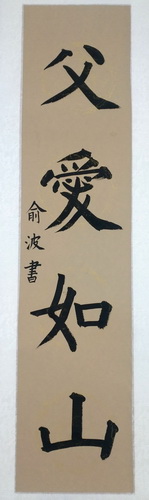 父愛如山
俞波書